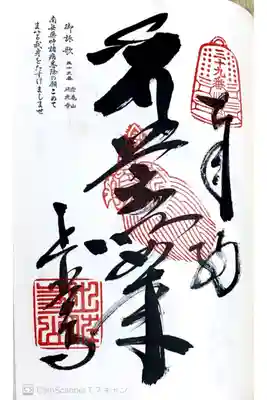 三十九番
奉納
延光寺
御詠歌
赤亀山
延光寺
南無薬師諸病悉除の願こめて
まいる我身をたすけましませ
CamScannerでスキャン